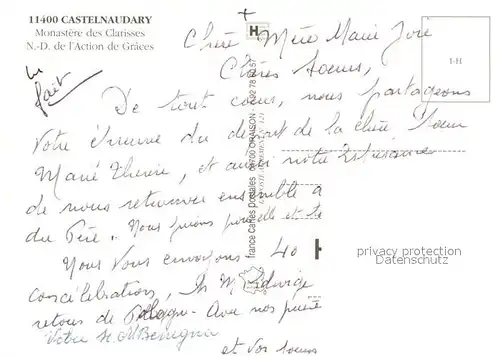 11400 CASTELNAUDARY
Monastère des Clarisses
N.-D. de l'Action de Grâces
+
H
Chère Mère Marie José
Chères Soeurs,
1-H
lu
fait
De tout coeur, nous partageons
votre épreuve du départ de la chère Soeur
Marie Thérèse, et aussi notre Espérance
de nous retrouver ensemble a
du Père. Nous prions pour elle et
Nous Vous envoyons 40
concélébrations, In M. Edwige
retour de Pologne. Avec nos prières
Votre Sr. M. Benigna
et vos soeurs
france Cartes Postales
privacy protection
Datenschutz